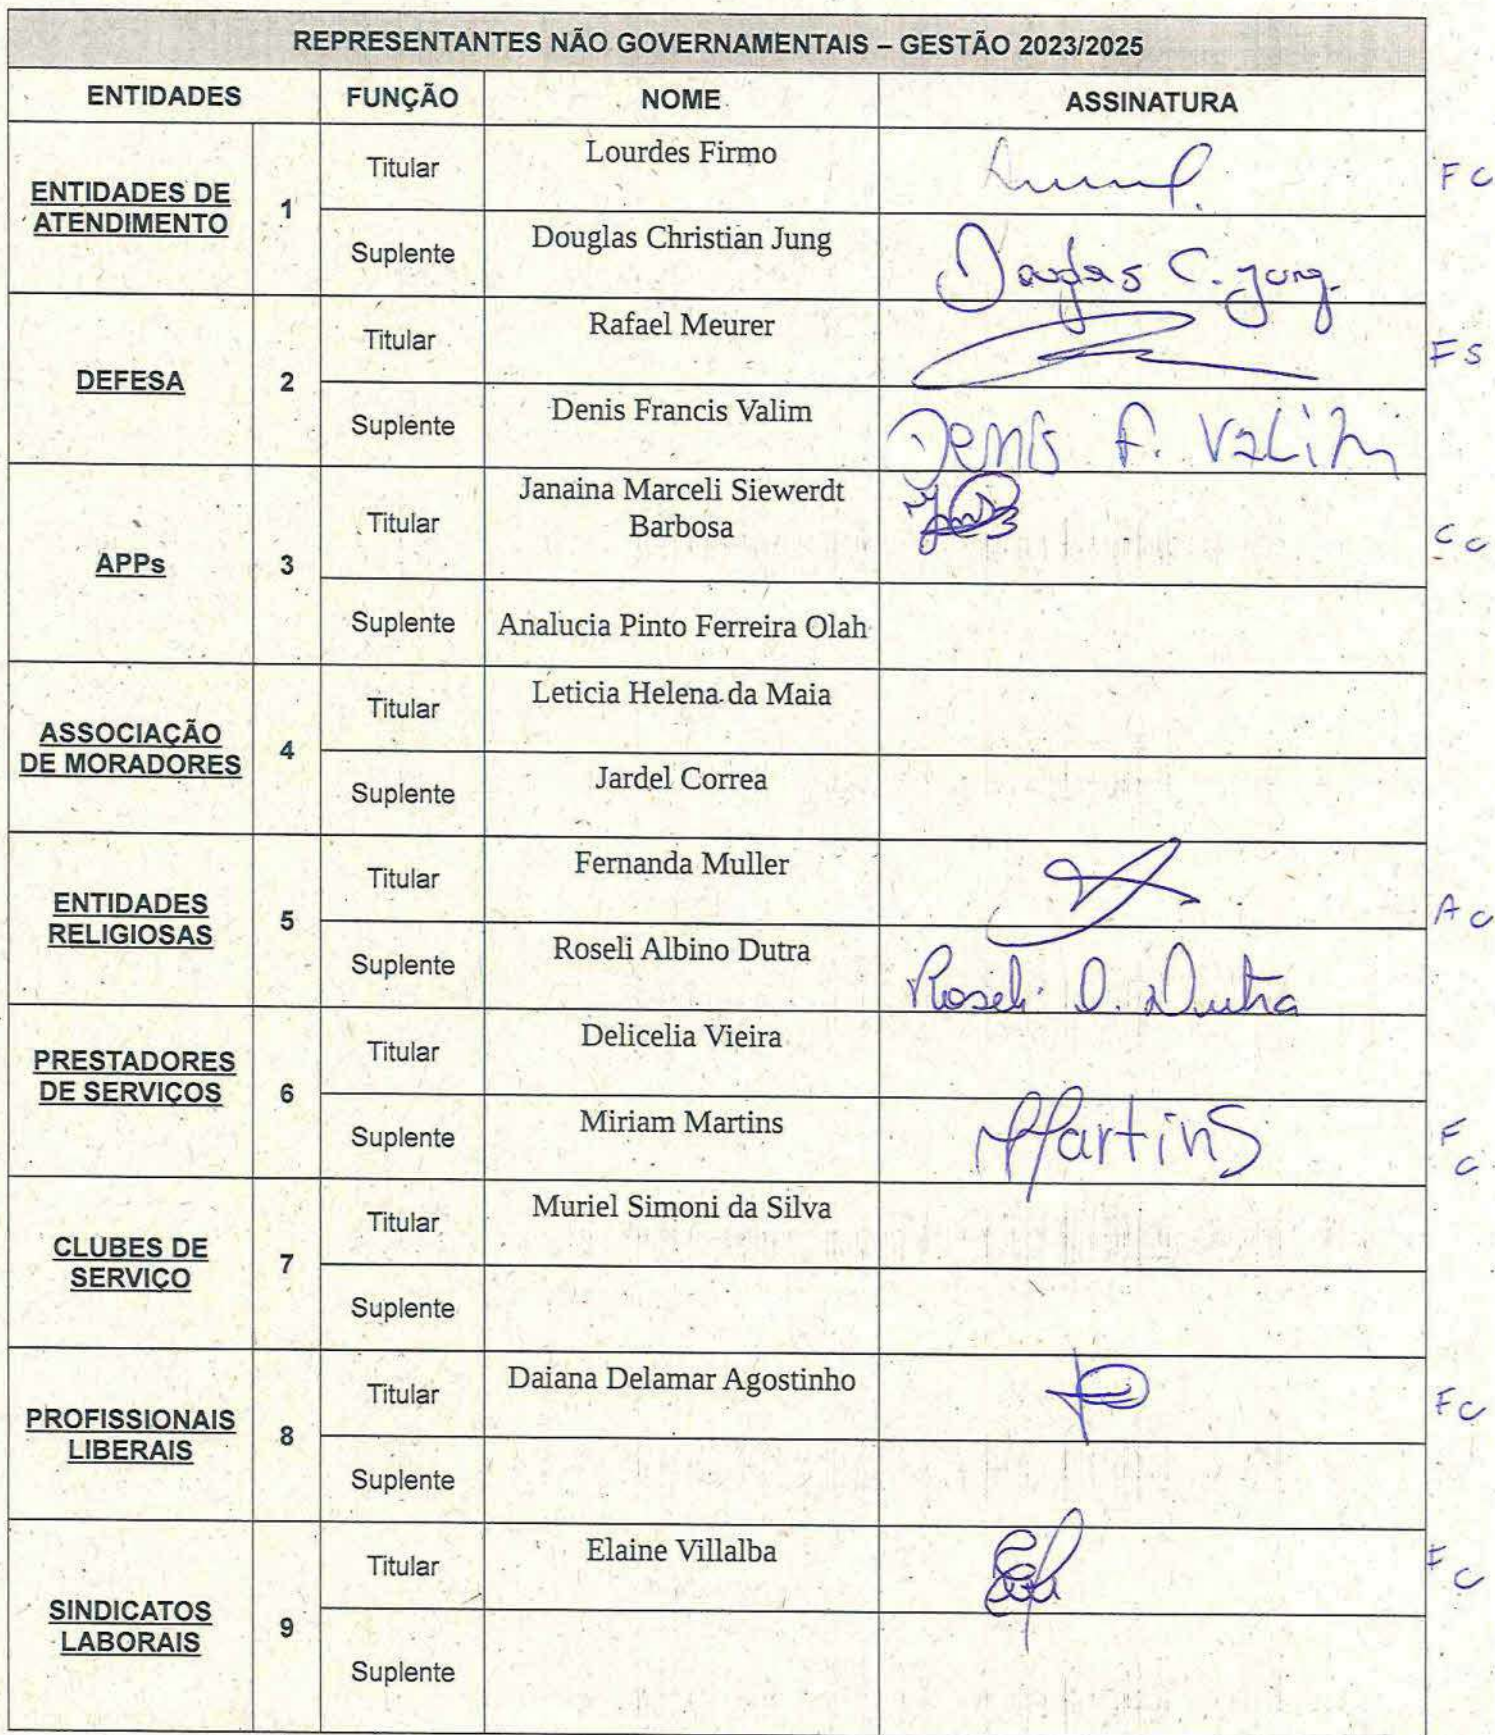 REPRESENTANTES NÃO GOVERNAMENTAIS – GESTÃO 2023/2025
ENTIDADES FUNÇÃO NOME ASSINATURA
ENTIDADES DE
ATENDIMENTO
1
Titular Lourdes Firmo
F C
Suplente Douglas Christian Jung Douglas C. Jung.
DEFESA
2
Titular Rafael Meurer
F S
Suplente Denis Francis Valim Denis F. Valim
APPs
3
Titular Janaina Marceli Siewerdt
Barbosa
C C
Suplente Analucia Pinto Ferreira Olah
ASSOCIAÇÃO
DE MORADORES
4
Titular Leticia Helena da Maia
Suplente Jardel Correa
ENTIDADES
RELIGIOSAS
5
Titular Fernanda Muller
A C
Suplente Roseli Albino Dutra Roseli D. Dutra
PRESTADORES
DE SERVIÇOS
6
Titular Delicelia Vieira
Suplente Miriam Martins Martins
F C
CLUBES DE
SERVIÇO
7
Titular Muriel Simoni da Silva
Suplente
PROFISSIONAIS
LIBERAIS
8
Titular Daiana Delamar Agostinho
F C
Suplente
SINDICATOS
LABORAIS
9
Titular Elaine Villalba
F C
Suplente